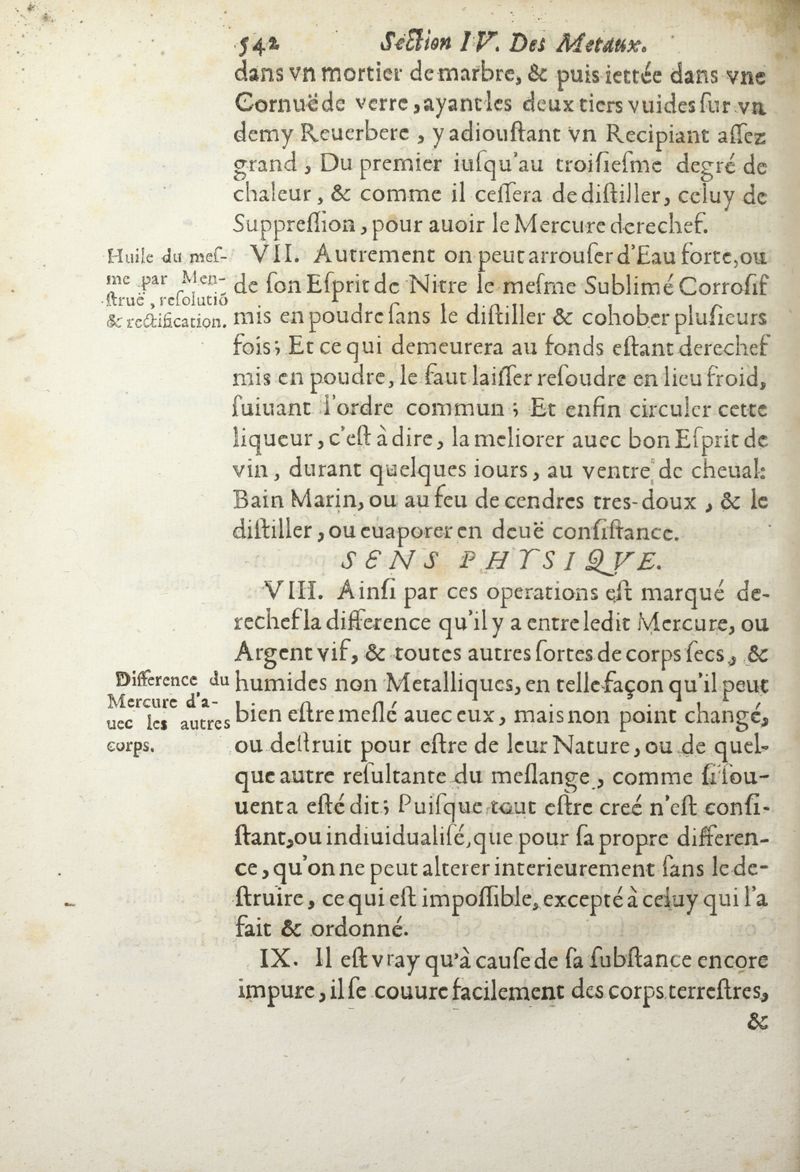 542 Section IV. Des Metaux.
dans vn mortier de marbre, & puis iettée dans vne
Cornuë de verre, ayant les deux tiers vuides ſur vn
demy Reuerbere , y adiouſtant vn Recipiant aſſez
grand , Du premier iuſqu'au troiſieſme degré de
chaleur , & comme il ceſſera de diſtiller, celuy de
Suppreſſion , pour auoir le Mercure derechef.
Huile du meſ-
me par Men-
ſtruë , reſolutiō
& rectification.
VII. Autrement on peut arrouſer d'Eau forte, ou
de ſon Eſprit de Nitre le meſme Sublimé Corroſif
mis en poudre ſans le diſtiller & cohober pluſieurs
fois ; Et ce qui demeurera au fonds eſtant derechef
mis en poudre, le faut laiſſer reſoudre en lieu froid,
ſuiuant l'ordre commun ; Et enfin circuler cette
liqueur , c'eſt à dire , la meliorer auec bon Eſprit de
vin , durant quelques iours , au ventre de cheual:
Bain Marin, ou au feu de cendres tres-doux , & le
diſtiller , ou euaporer en deuë conſiſtance.
SENS PHYSIQVE.
VIII. Ainſi par ces operations eſt marqué de-
rechef la difference qu'il y a entre ledit Mercure, ou
Argent vif, & toutes autres ſortes de corps ſecs , &
Difference du
Mercure d'a-
uec les autres
corps.
humides non Metalliques, en telle façon qu'il peut
bien eſtre meſlé auec eux , mais non point changé,
ou deſtruit pour eſtre de leur Nature , ou de quel-
que autre reſultante du meſlange , comme ſi ſou-
uent a eſté dit ; Puiſque tout eſtre creé n'eſt conſi-
ſtant, ou indiuidualiſé, que pour ſa propre differen-
ce , qu'on ne peut alterer interieurement ſans le de-
ſtruire , ce qui eſt impoſſible, excepté à celuy qui l'a
fait & ordonné.
IX. Il eſt vray qu'à cauſe de ſa ſubſtance encore
impure , il ſe couure facilement des corps terreſtres,
&